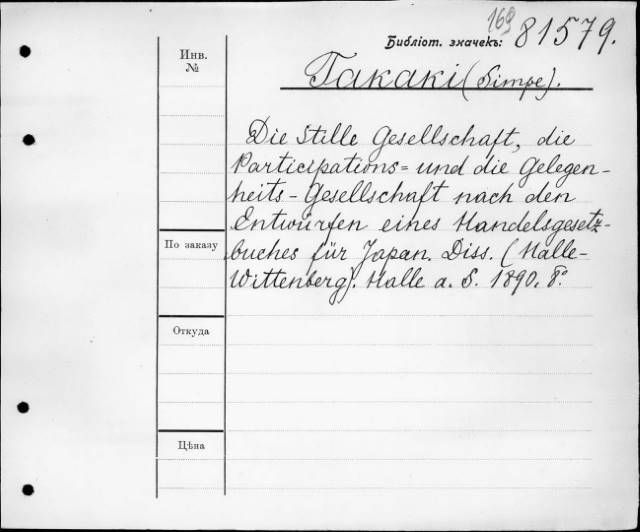 169
Библіот. значекъ: 81579.
Инв.
№
Takaki (Simpe).
Die Stille Gesellschaft, die
Participations= und die Gelegen-
heits-Gesellschaft nach den
Entwürfen eines Handelsgesetz-
По заказу
buches für Japan. Diss. (Halle-
Wittenberg). Halle a. S. 1890. 8º.
Откуда
Цѣна